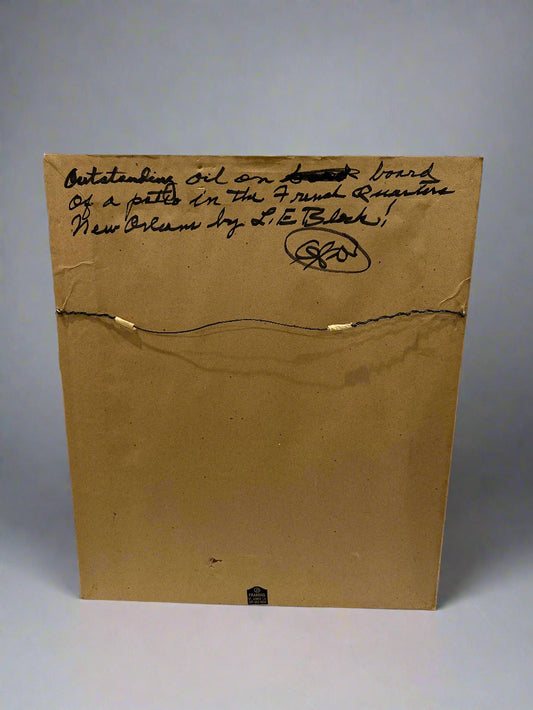 Outstanding oil on board
of a patio in the French Quarters
New Orleans by L. E Black!
FRAMING